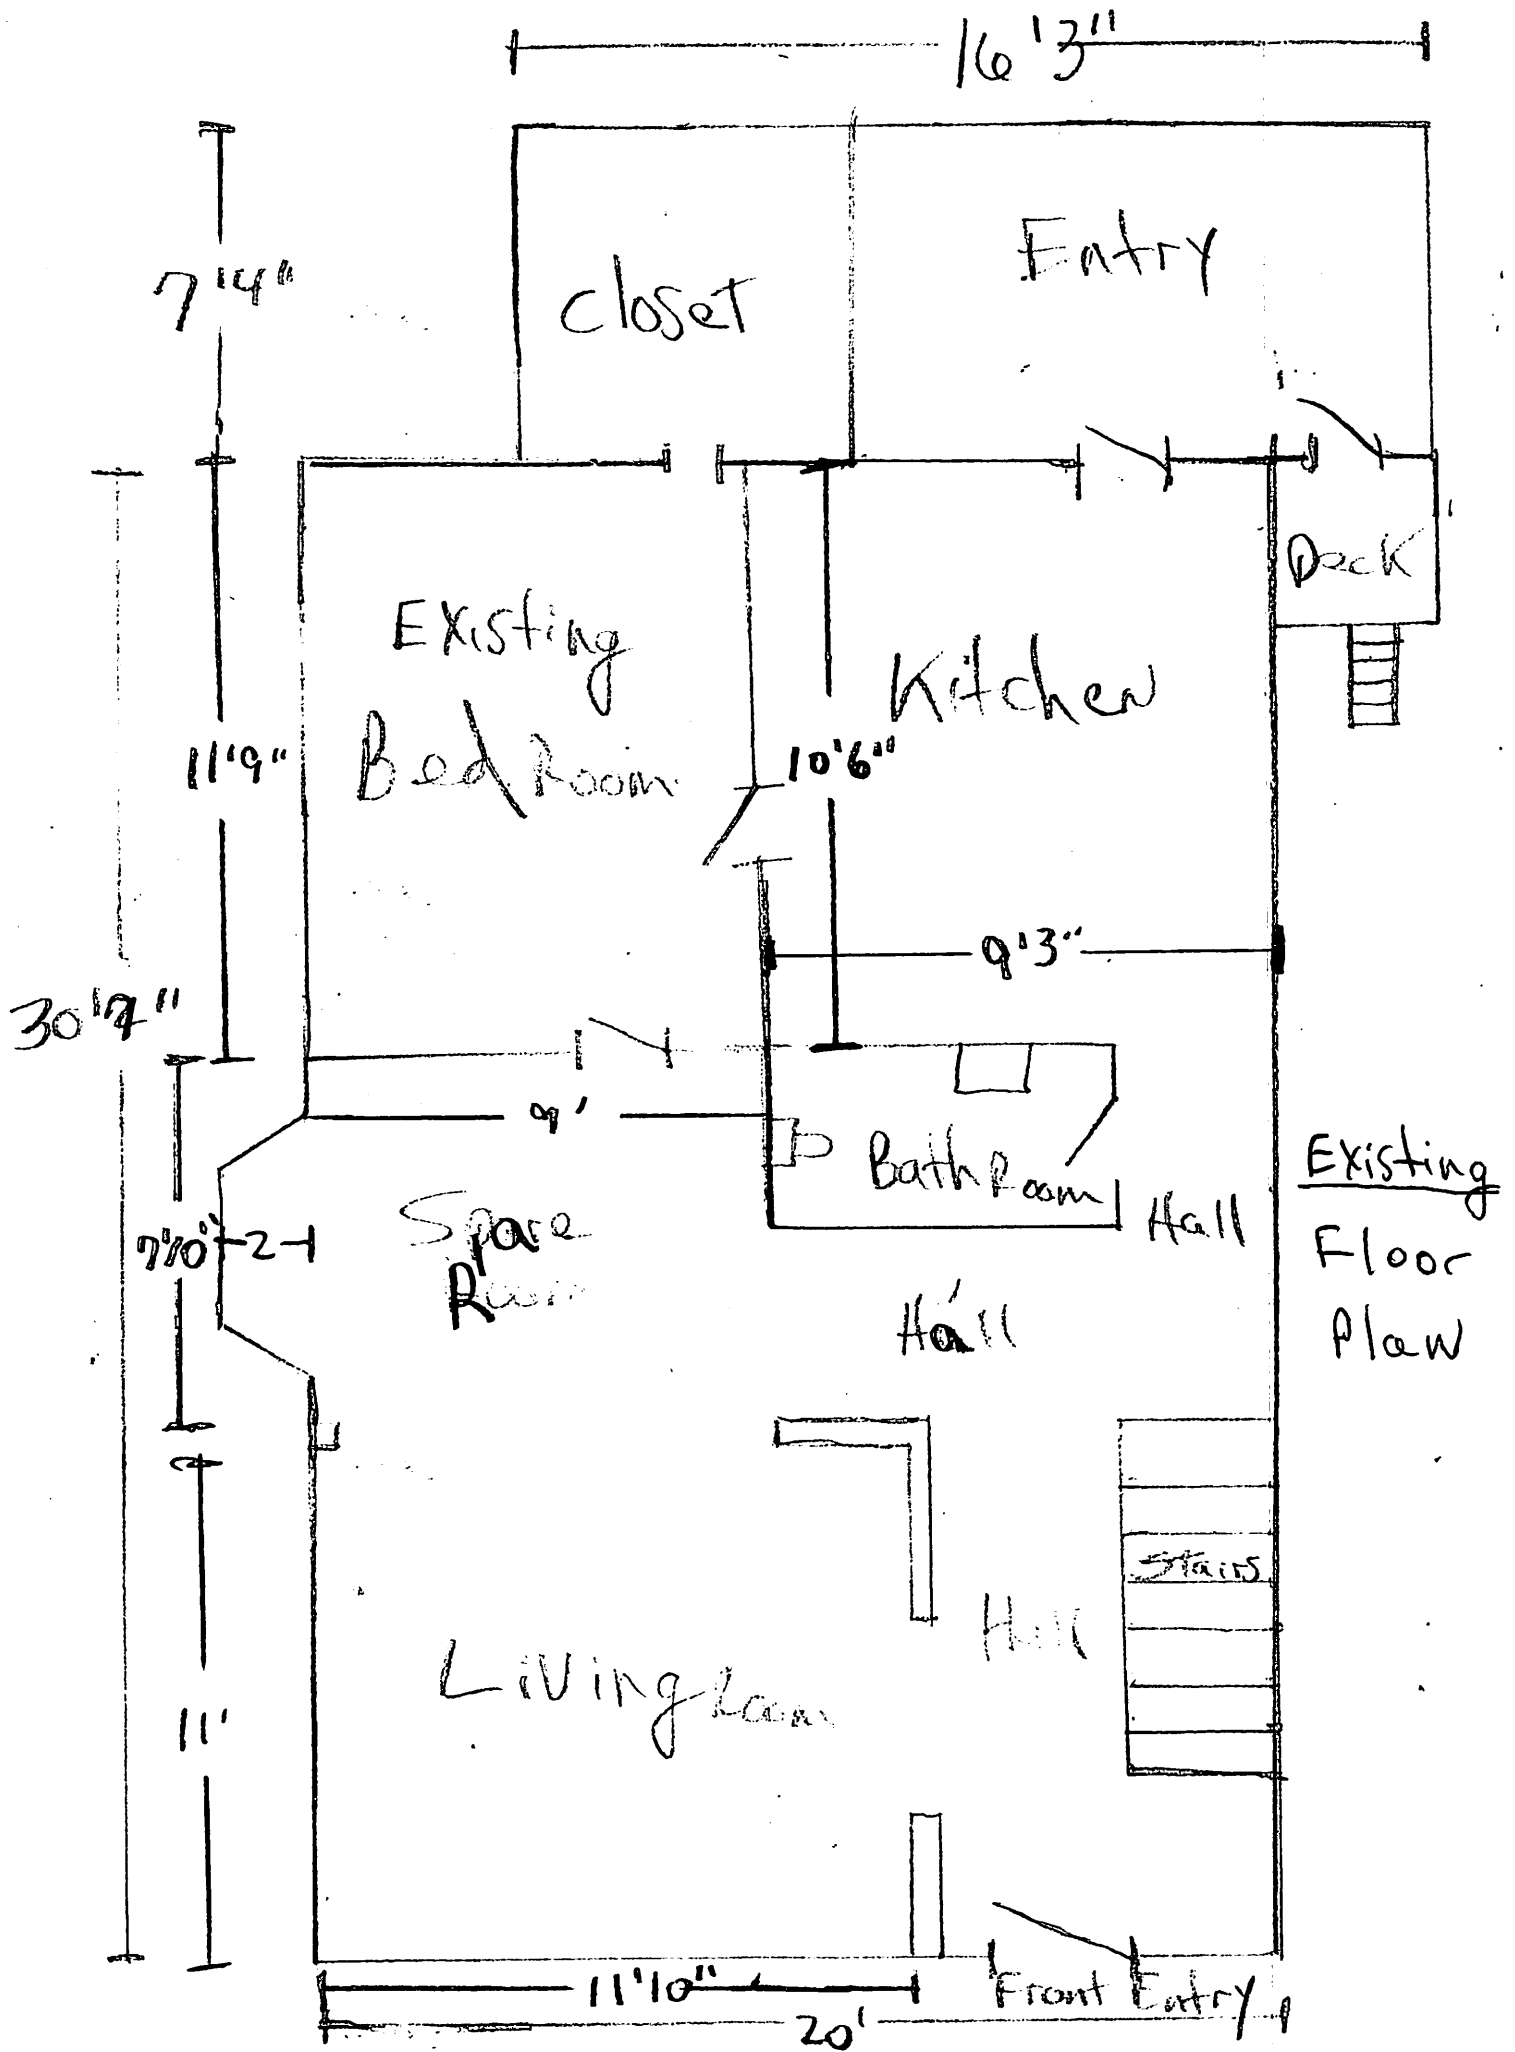 16'3"
7'4"
Closet
Entry
Deck
Existing
Bed Room
Kitchen
11'9"
10'6"
9'3"
9'
Bath Room
Hall
Existing
Floor
Plan
7'10"
2
Spare
Room
Hall
Stairs
Hall
Living Room
11'
11'10"
Front Entry
20'